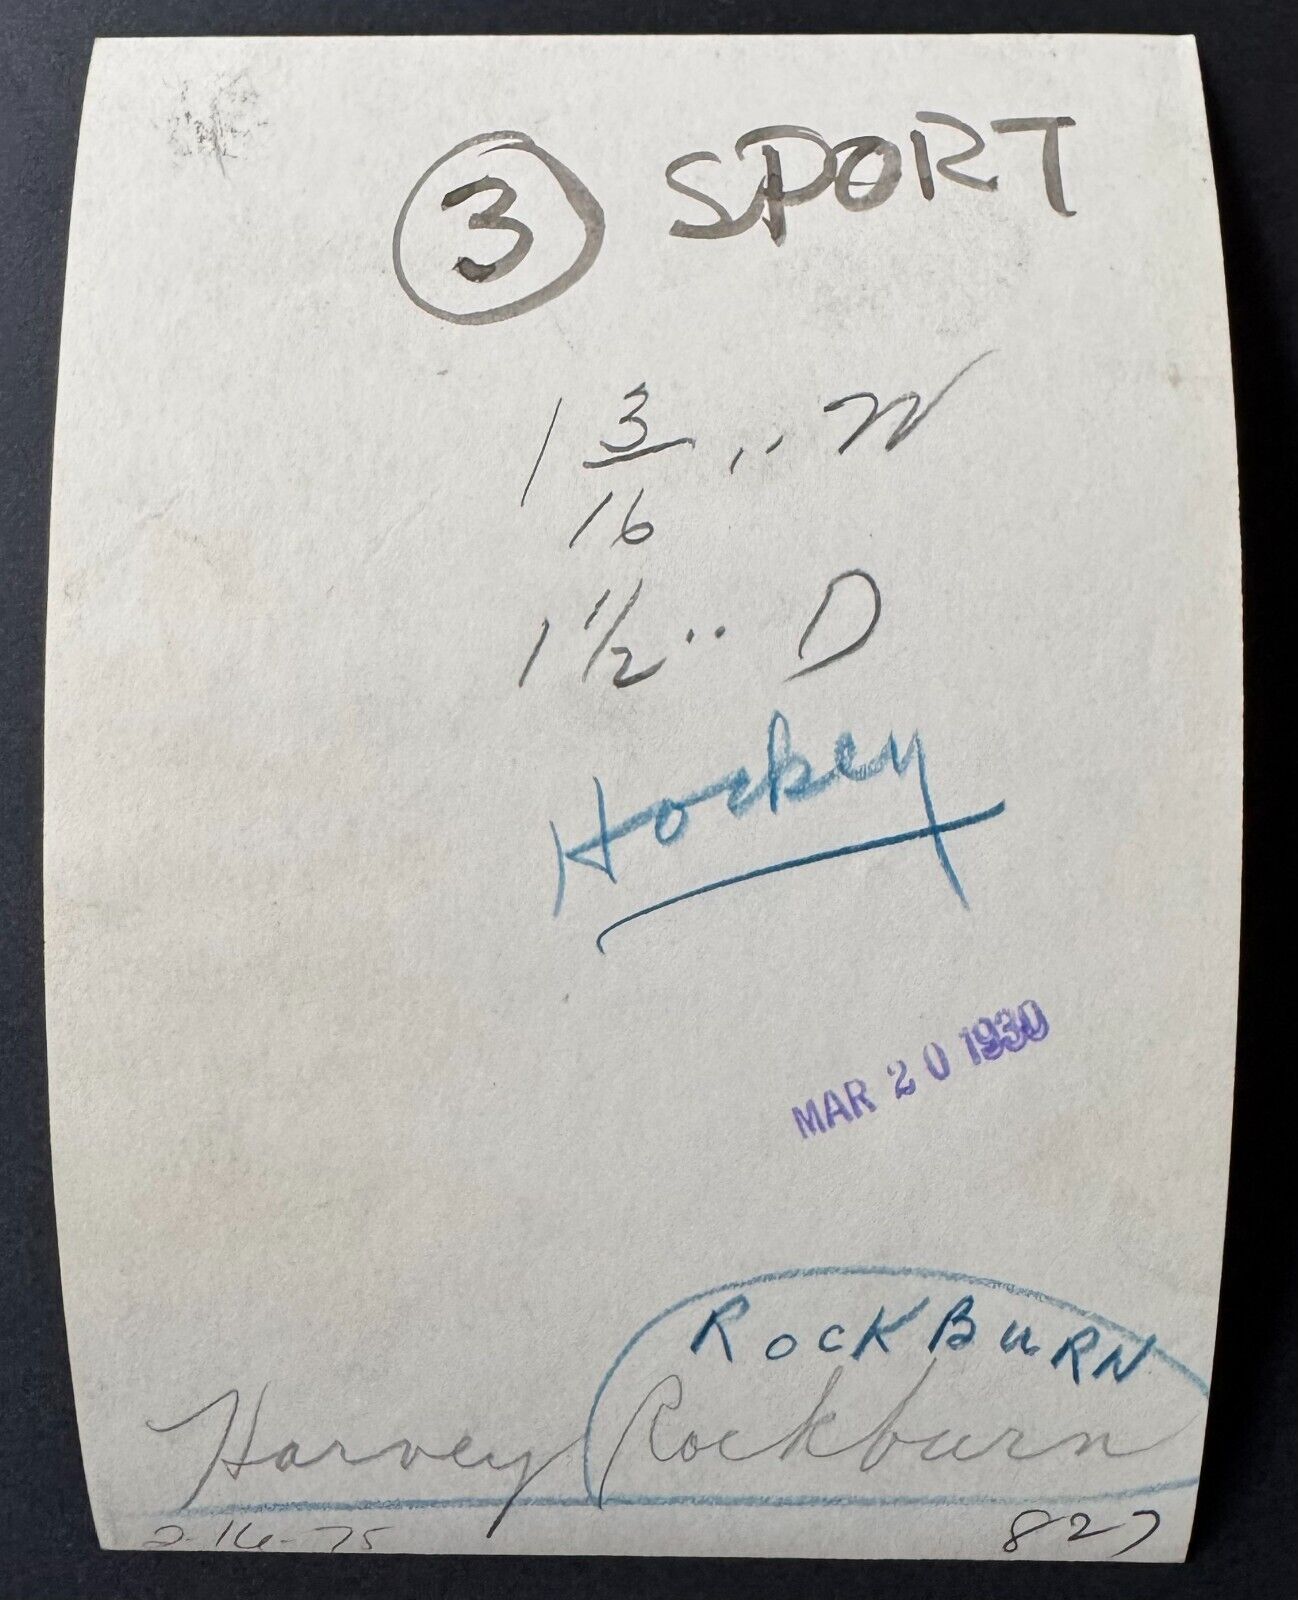 ③ SPORT
1 3/16 '' W
1 1/2 '' D
Hockey
MAR 20 1930
ROCKBURN
Harvey Rockburn
2-16-75
827